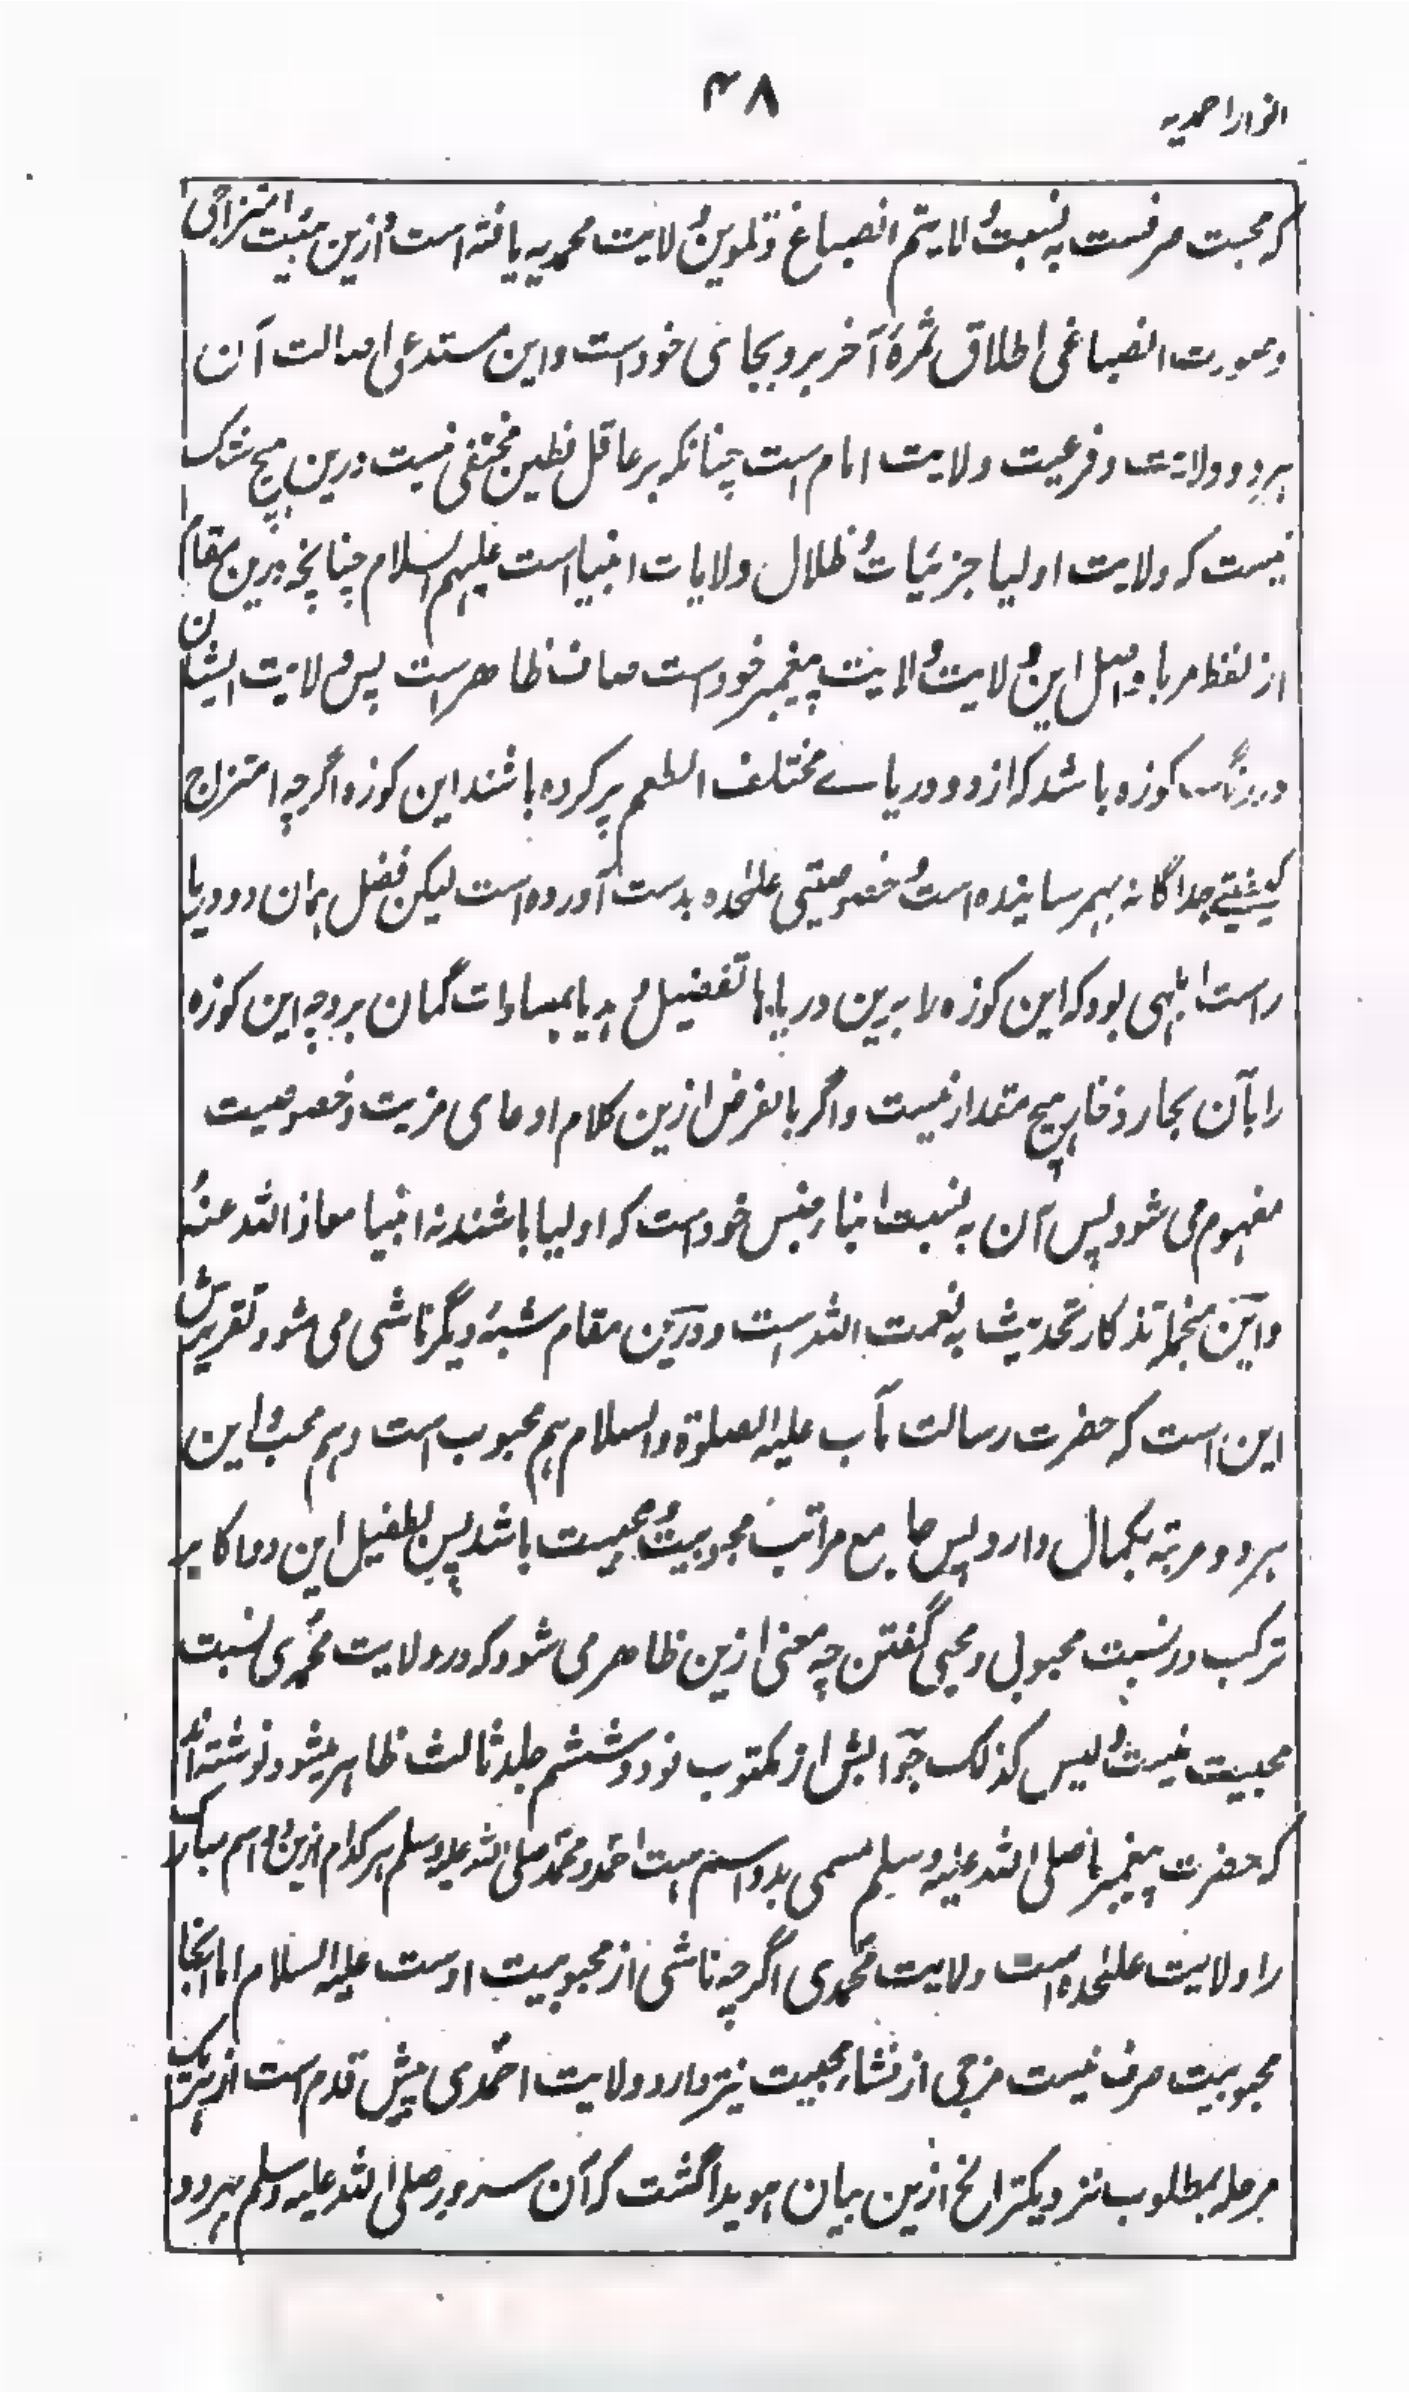 انوار احمدیه
۴۸
که محبت صرفست به نسبت ولایتم انصباغ و تلوین ولایت محمدیه یافته است و ازین هیئت امتزاجی
و صورت انصباغی اطلاق ثمرهٔ آخر برو بجای خود است و این مستدعی اصالت آن
هر دو ولایت و فرعیت ولایت امام است چنانکه بر عاقل فطین مختفی نیست و درین هیچ شک
نیست که ولایت اولیا جزئیات و ظلال ولایات انبیا است علیهم السلام چنانچه درین مقام
از لفظ مربا و اصل این ولایت ولایت پیغمبر خود است صاف ظاهر است پس ولایت ایشان
در رنگ کوزه باشد که از دو دریاے مختلف الطعم پر کرده باشند این کوزه اگرچه امتزاج
کیفیتے جداگانه بهم رسانیده است و خصوصیتی علٰحده بدست آورده است لیکن فضل همان دو دریا
راست ابلهی بود که این کوزه را برین دریاها تفضیل دهد یا بمساوات گمان برد چه این کوزه
را بآن بحار ذخار هیچ مقدار نیست و اگر بالفرض ازین کلام ادعای مزیت و خصوصیت
مفهوم می شود پس آن به نسبت ابنار جنس خود است که اولیا باشند نه انبیا معاذ الله عنه
و این منجملهٔ تذکار تحدیث به نعمت الله است و درین مقام شبهٔ دیگر ناشی می شود تقریرش
این است که حضرت رسالت مآب علیه الصلوٰة والسلام هم محبوب است و هم محب و این
هر دو مرتبه بکمال دارد پس جامع مراتب محبوبیت و محبیت باشد پس بطفیل این دو ما کا بہ
ترکب در نسبت محبوبی و محبی گفتن چه معنی ازین ظاهر می شود که در ولایت محمدی نسبت
محبیت نیست و لیس کذلک جوابش از مکتوب نود و ششم جلد ثالث ظاهر میشود نوشته اند
که حضرت پیغمبر ما صلی الله علیه وسلم مسمی بدو اسم است احمد و محمد صلی الله علیه وسلم هر کدام ازین دو اسم مبارک
را ولایت علٰحده است ولایت محمدی اگرچه ناشی از محبوبیت اوست علیه السلام اما آنجا
محبوبیت صرف نیست مزجی از نشاء محبیت نیز دارد و ولایت احمدی پیش قدم است از یک
مرحله بمطلوب نزدیکتر الخ ازین بیان هویدا گشت که آن سرور صلی الله علیه وسلم بهر دو